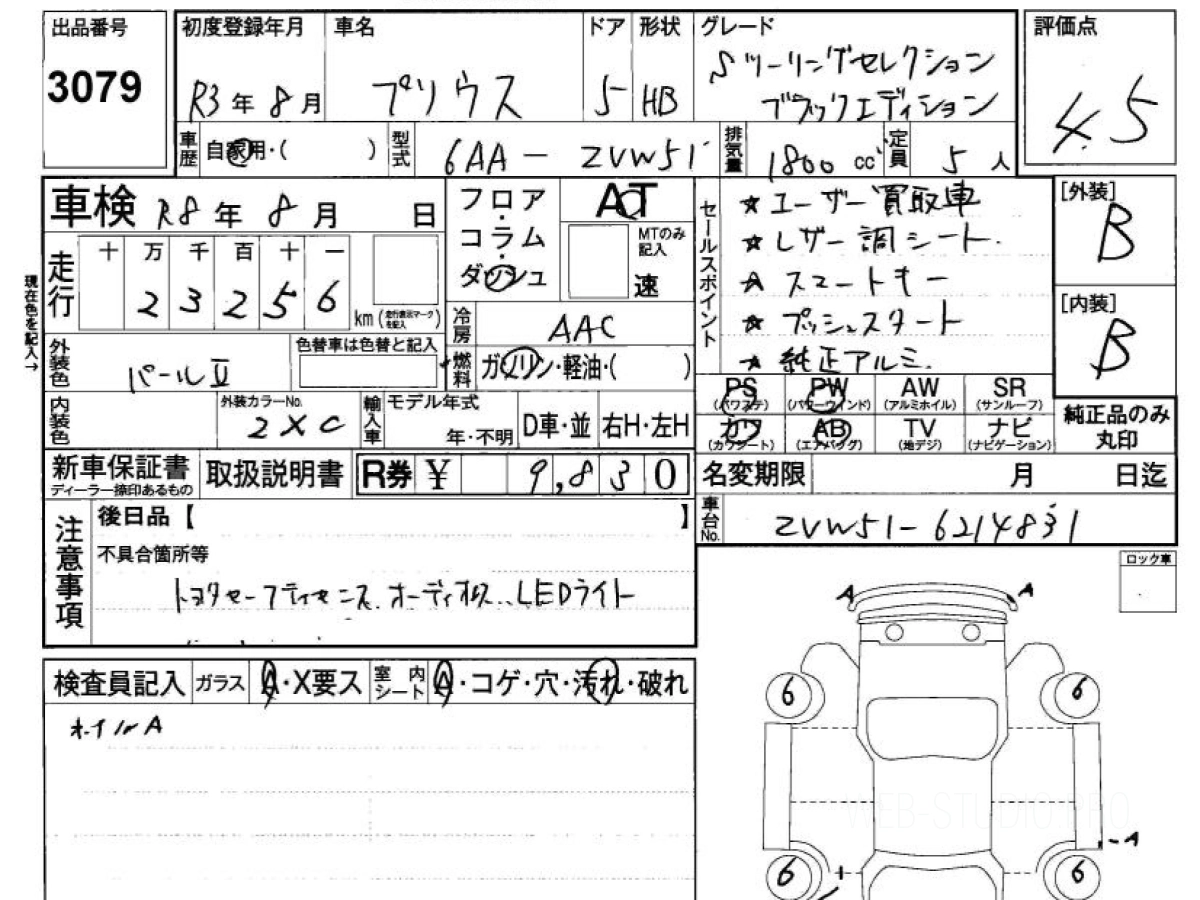 出品番号
3079
初度登録年月
R3年8月
車名
プリウス
ドア
5
形状
HB
グレード
Sツーリングセレクション
ブラックエディション
評価点
4.5
車歴
自家用・( )
型式
6AA - ZVW51
排気量
1800 cc
定員
5人
車検
R8年8月 日
フロア・
コラム・
ダッシュ
AT
MTのみ
記入
速
セールスポイント
☆ユーザー買取車
☆レザー調シート.
☆スマートキー
☆プッシュスタート
☆純正アルミ.
[外装]
B
[内装]
B
現在色を記入→
走行
十 万 千 百 十 一
2 3 2 5 6
km(走行表示マークを記入)
冷房
AAC
外装色
パールII
色替車は色替と記入
燃料
ガソリン・軽油・( )
PS
(パワステ)
PW
(パワーウィンド)
AW
(アルミホイル)
SR
(サンルーフ)
カワ
(カワシート)
AB
(エアバッグ)
TV
(地デジ)
ナビ
(ナビゲーション)
純正品のみ
丸印
内装色
外装カラーNo.
2XC
輸入車
モデル年式
年・不明
D車・並
右H・左H
新車保証書
ディーラー捺印あるもの
取扱説明書
R券 ¥ 9,830
名変期限 月 日迄
車台No.
ZVW51-6214831
注意事項
後日品【 】
不具合箇所等
トヨタセーフティセンス. オーディオレス.. LEDライト
ロック車
A A
6 6
検査員記入
ガラス
A・X要ス
室内
シート
A・コゲ・穴・汚れ・破れ
ホイルA
WEB-STUDIO.PRO.
A
6 6